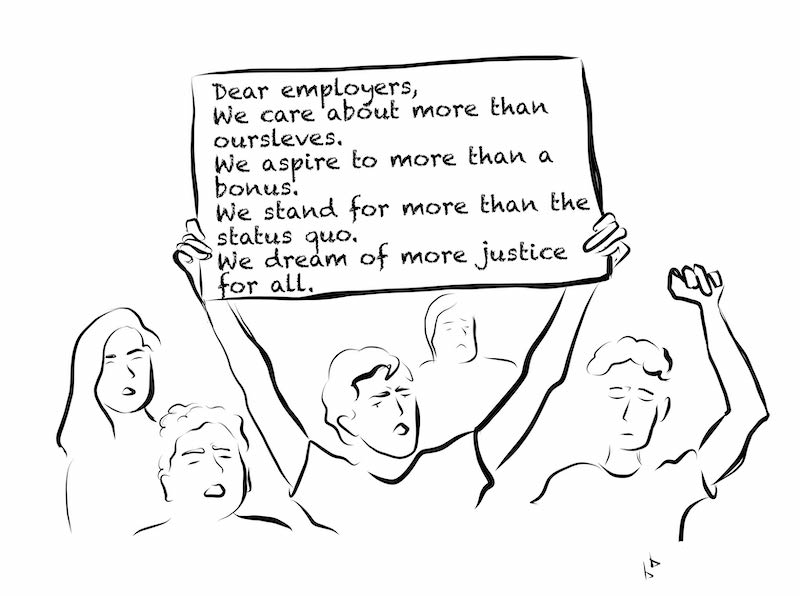 Dear employers,
We care about more than
oursleves.
We aspire to more than a
bonus.
We stand for more than the
status quo.
We dream of more justice
for all.